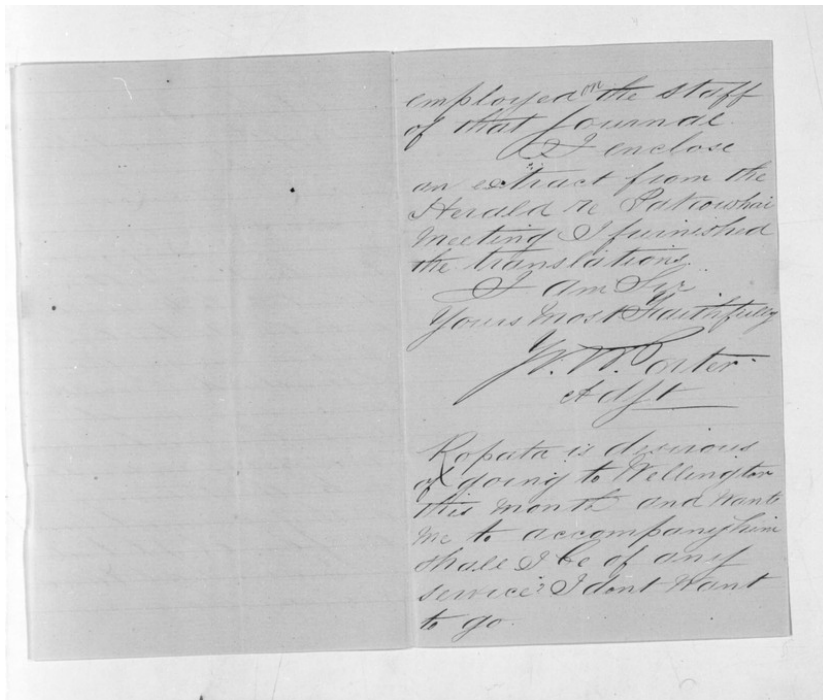 employed on the staff
of that Journal.
I enclose
an extract from the
Herald re Patrowhai
Meeting I furnished
the translations.
I am Sir
Yours most Faithfully
W. Porter
Adjt
Ropata is desirous
of going to Wellington
this month and wants
me to accompany him
shall I be of any
service? I dont want
to go.